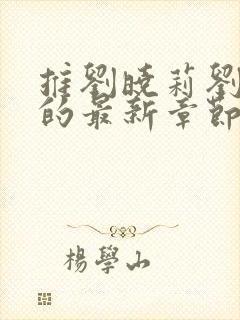 推劉曉莉劉
的最新章節
楊學山